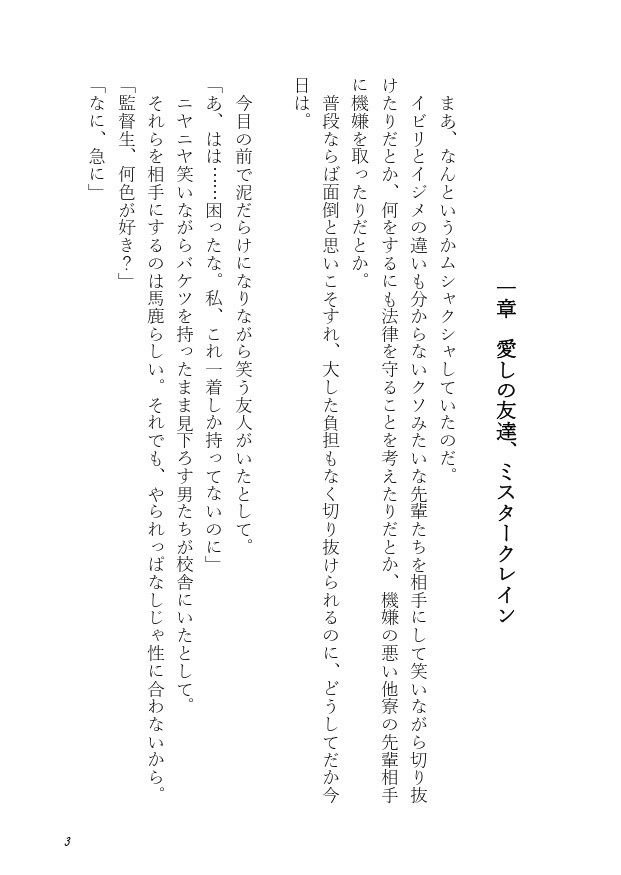 一章　愛しの友達、ミスタークレイン
まあ、なんというかムシャクシャしていたのだ。
イビリとイジメの違いも分からないクソみたいな先輩たちを相手にして笑いながら切り抜
けたりだとか、何をするにも法律を守ることを考えたりだとか、機嫌の悪い他寮の先輩相手
に機嫌を取ったりだとか。
普段ならば面倒と思いこそすれ、大した負担もなく切り抜けられるのに、どうしてだか今
日は。
今目の前で泥だらけになりながら笑う友人がいたとして。
「あ、はは……困ったな。私、これ一着しか持ってないのに」
ニヤニヤ笑いながらバケツを持ったまま見下ろす男たちが校舎にいたとして。
それらを相手にするのは馬鹿らしい。それでも、やられっぱなしじゃ性に合わないから。
「監督生、何色が好き？」
「なに、急に」
3